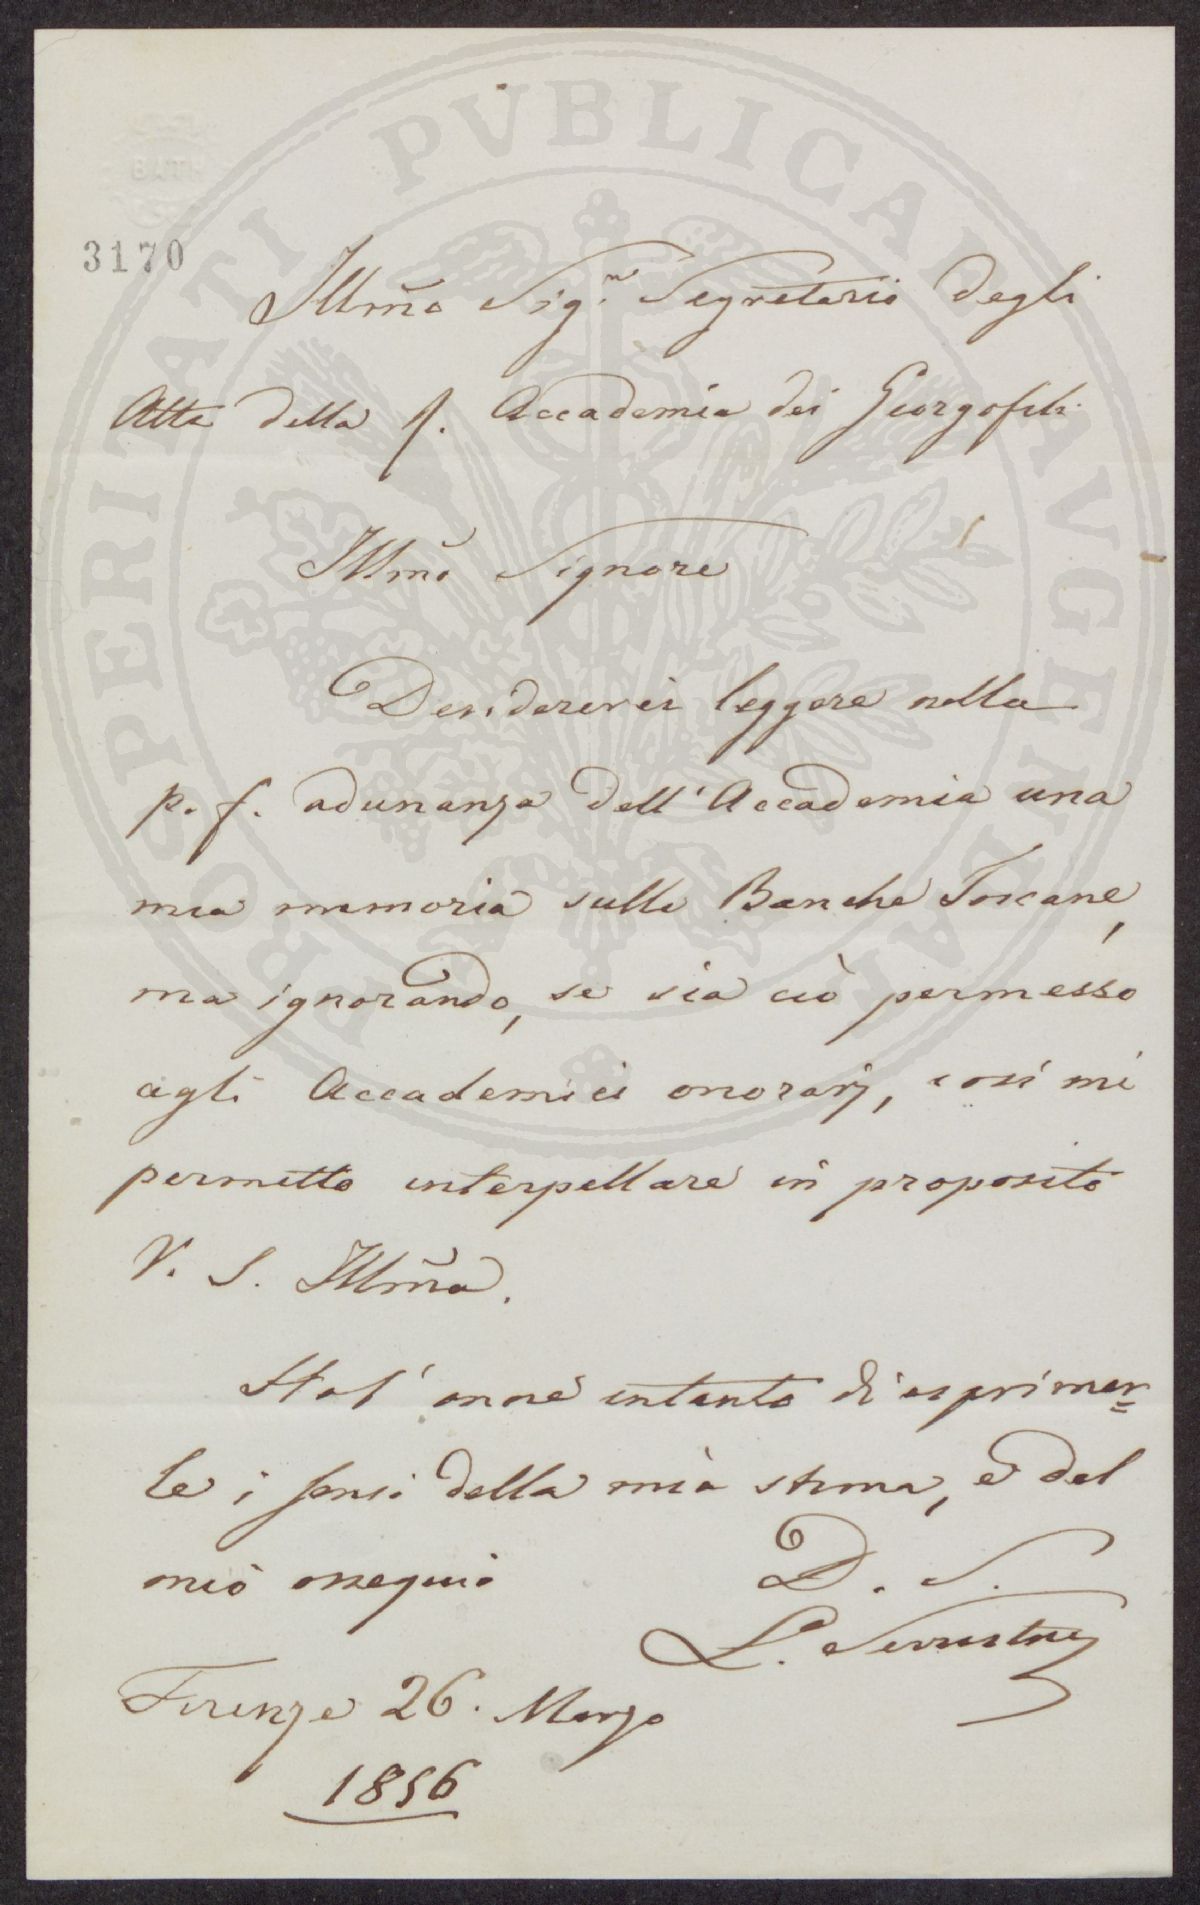 PROSPERITATI PVBLICAE AVGENDAE
BATH
3170
Illm̃o Sig.r Segretario degli
Atti della I. Accademia dei Georgofili
Illm̃o Signore
Desidererei leggere nella
p. f. adunanza dell'Accademia una
mia memoria sulle Banche Toscane,
ma ignorando, se sia ciò permesso
agli Accademici onorarj, così mi
permetto interpellare in proposito
V. S. Illm̃a.
Ho l'onore intanto di esprimer=
le i sensi della mia stima, e del
mio ossequio
D. S.
L. Serristori
Firenze 26. Marzo
1856